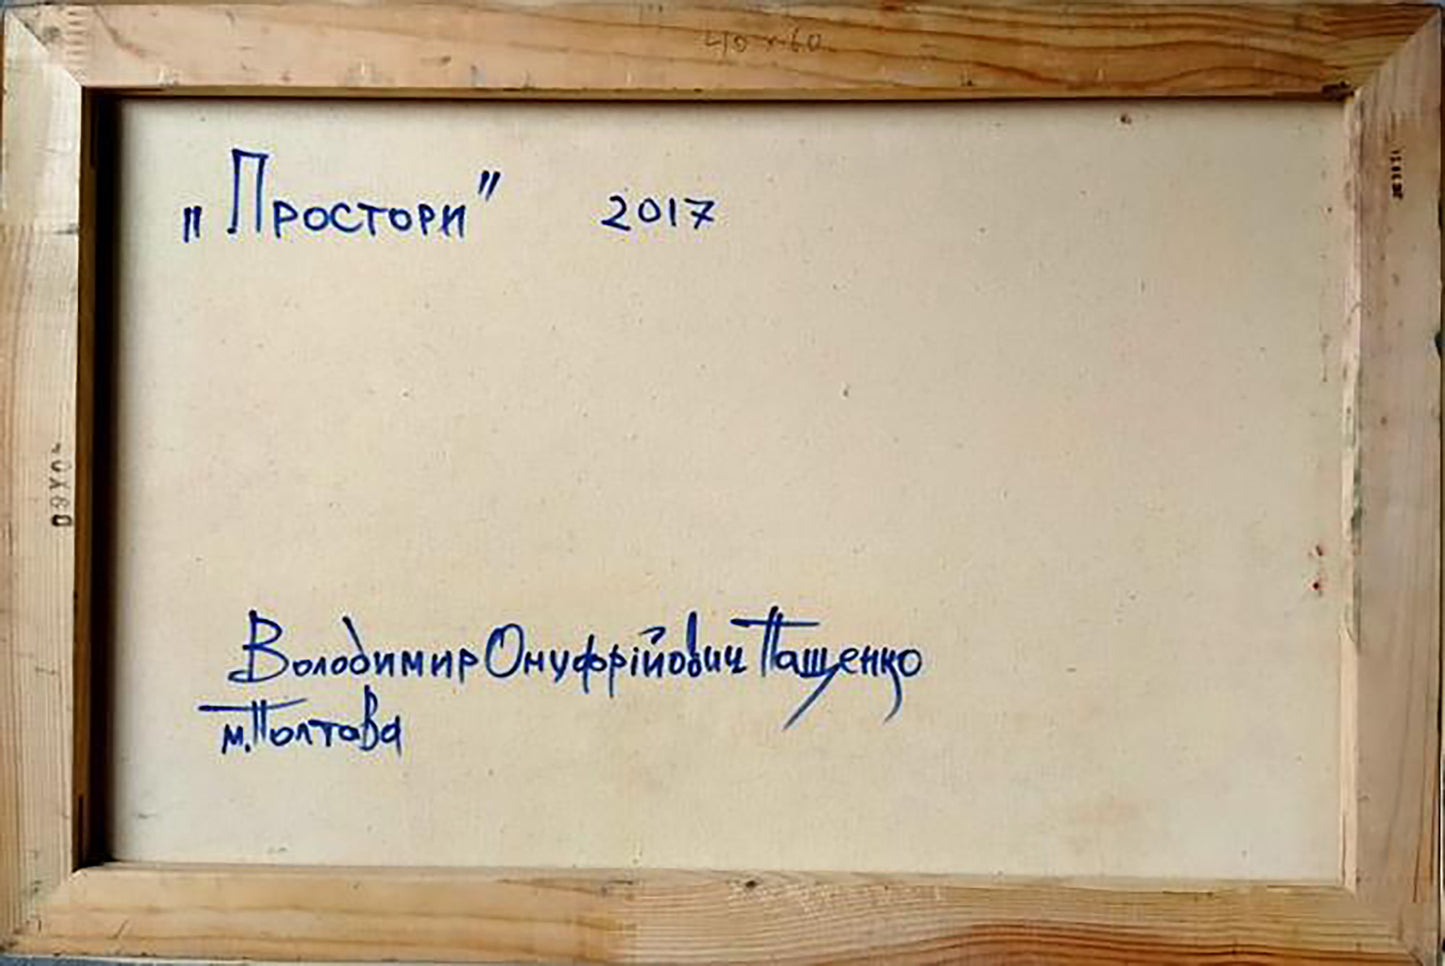 40 x 60
„Простори” 2017
40X60
Володимир Онуфрійович Пащенко
м.Полтава